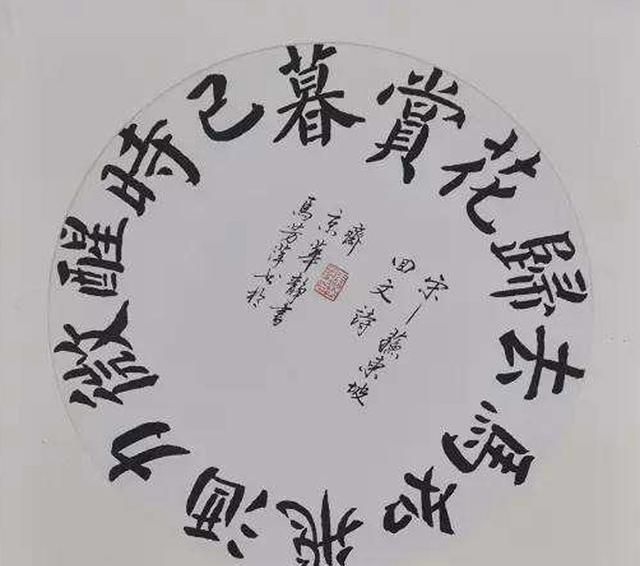 賞花歸去馬如飛酒力微醒時已暮
宋蘇東坡
回文詩
馬芳萍书於
京華靜書
齋